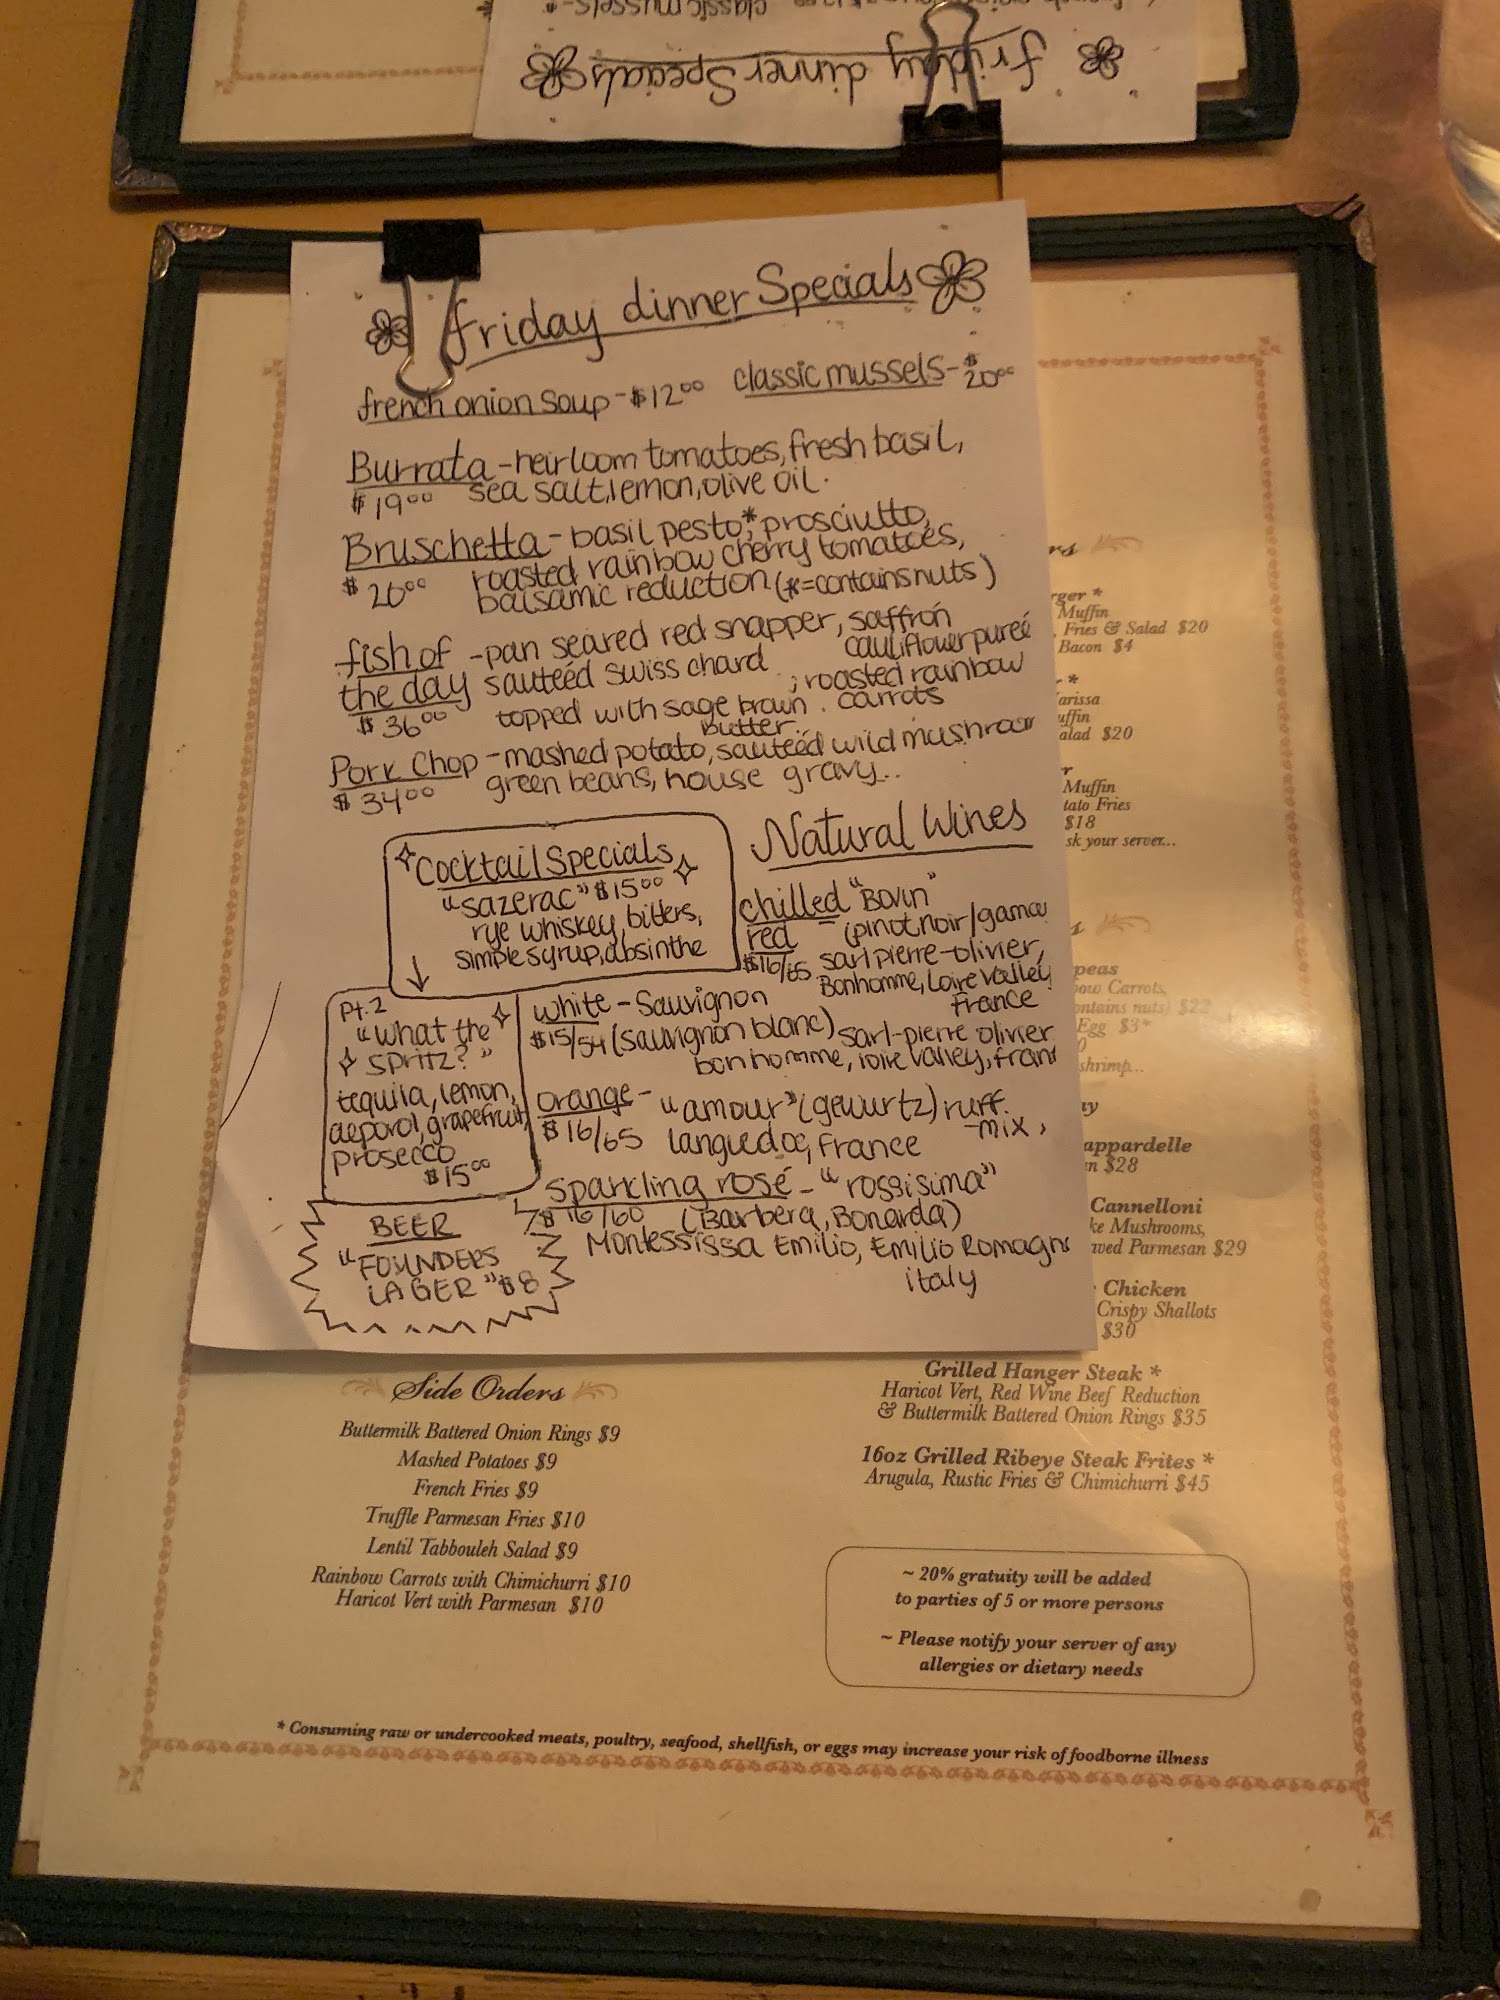 friday dinner Specials
friday dinner Specials
french onion soup - $12.00 classic mussels - $20.00
Burrata - heirloom tomatoes, fresh basil,
$19.00 sea salt, lemon, olive oil.
Bruschetta - basil pesto*, prosciutto,
$20.00 roasted rainbow cherry tomatoes,
balsamic reduction (*=contains nuts)
fish of - pan seared red snapper, saffron
the day sauteéd swiss chard cauliflower pureé
; roasted rainbow
$36.00 topped with sage brown . carrots
butter
Pork Chop - mashed potato, sauteéd wild mushroom
$34.00 green beans, house gravy..
Cocktail Specials
"sazerac" $15.00
rye whiskey, bitters,
simple syrup, absinthe
Pt. 2
"What the
spritz?"
tequila, lemon,
aeporol, grapefruit,
prosecco
$15.00
BEER
"FOUNDERS
LAGER" $8
Natural Wines
chilled "Bovin"
red - (pinot noir/gamay
$16/65 sarl pierre-olivier,
Bonhomme, Loire Valley
France
white - Sauvignon
$15/54 (sauvignon blanc) sarl-pierre olivier
bonhomme, loire valley, france
orange - "amour" (gewurtz) ruff.
-mix,
$16/65 languedoc, france
sparkling rosé - "rossisima"
$16/60 (Barbera, Bonarda)
Montessissa Emilio, Emilio Romagna
italy
rger *
Muffin
, Fries & Salad $20
Bacon $4
r *
arissa
uffin
alad $20
r
Muffin
tato Fries
$18
sk your server...
s
peas
ow Carrots,
ontains nuts) $22
Egg $3*
0
shrimp...
ay
appardelle
n $28
Cannelloni
ke Mushrooms,
aved Parmesan $29
Chicken
Crispy Shallots
$30
Grilled Hanger Steak *
Haricot Vert, Red Wine Beef Reduction
& Buttermilk Battered Onion Rings $35
16oz Grilled Ribeye Steak Frites *
Arugula, Rustic Fries & Chimichurri $45
Side Orders
Buttermilk Battered Onion Rings $9
Mashed Potatoes $9
French Fries $9
Truffle Parmesan Fries $10
Lentil Tabbouleh Salad $9
Rainbow Carrots with Chimichurri $10
Haricot Vert with Parmesan $10
~ 20% gratuity will be added
to parties of 5 or more persons
~ Please notify your server of any
allergies or dietary needs
* Consuming raw or undercooked meats, poultry, seafood, shellfish, or eggs may increase your risk of foodborne illness